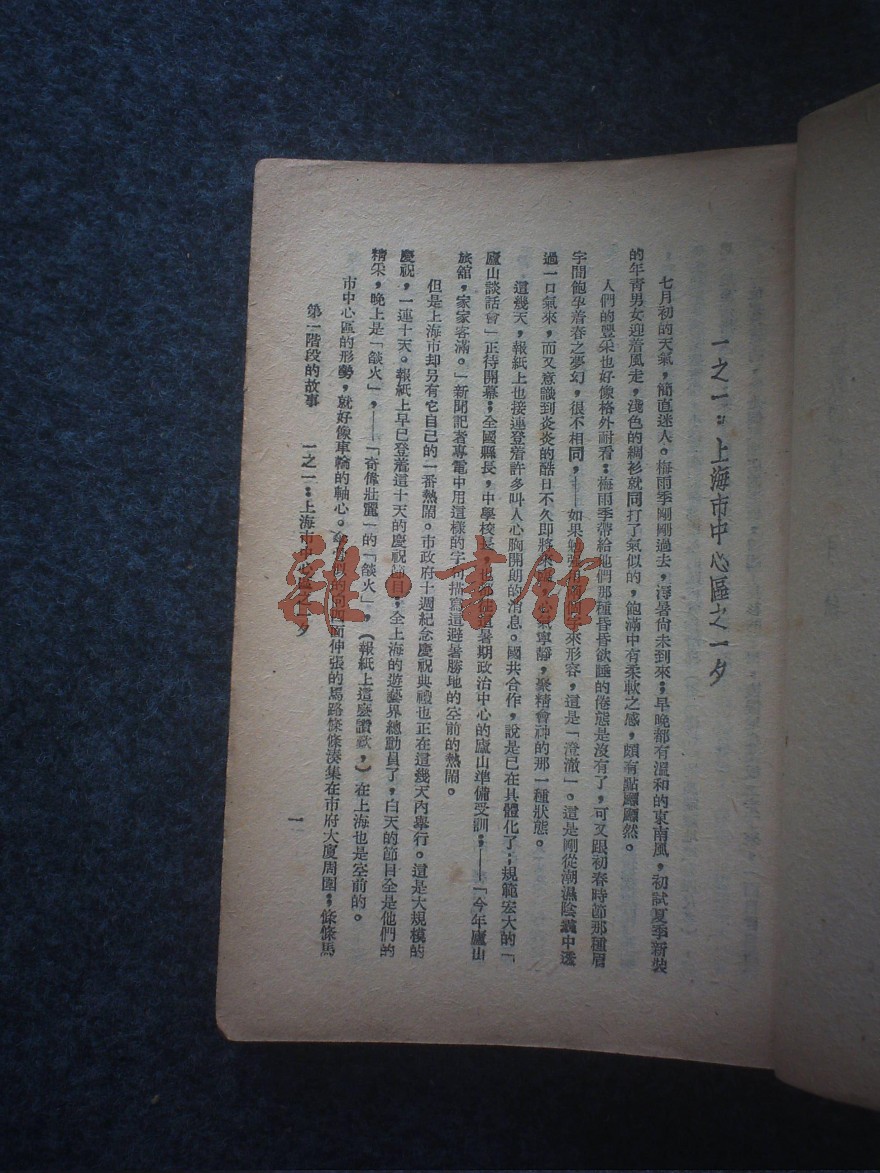 一之一：上海市中心區之一夕
七月初的天氣，簡直迷人。梅雨季剛剛過去，溽暑尙未到來；早晚都有溫和的東南風，初試夏季新裝
的年靑男女迎着風走，淺色的綢衫就同打了氣似的，飽滿中有柔軟之感，頗有點飄飄然。
人們的豐采也好像格外耐看：梅雨季帶給他們那種昏昏欲睡的倦態是沒有了，可又跟初春時節那種眉
宇間飽孕着春之夢幻，很不相同，——如果 來形容，這是「澄澈」。這是剛從潮濕陰霾中透
過一口氣來，而又意識到炎炎的酷日不久即將來 寧靜，聚精會神的那一種狀態。
這幾天，報紙上也接連登着許多叫人心胸開朗的消息。國共合作，說是已在具體化了；規範宏大的「
廬山談話會」正待開幕；全國縣長，中學校長，也 這暑期政治中心的廬山準備受訓；——「今年廬山
旅館，家家客滿。」新聞記者專電中用這樣的字句描寫這避暑勝地的空前的熱鬧。
但是上海市却另有它自己的一番熱鬧。市政府十週紀念慶祝典禮也正在這幾天內舉行。這是大規模的
慶祝，一連十天。報紙上早已登着這十天的慶祝節目；全上海的遊藝界總動員了，白天的節目全是他們的
精采，晚上是「燄火」，——「奇偉壯麗」的「燄火」，（報紙上這麼讚歎，）在上海也是空前的。
市中心區的形勢，就好像車輪的軸心。 的向四面伸張的馬路條條湊集在市府大廈周圍；條條馬
第一階段的故事 一之一：上海市中心區之一夕
一
雅·書館